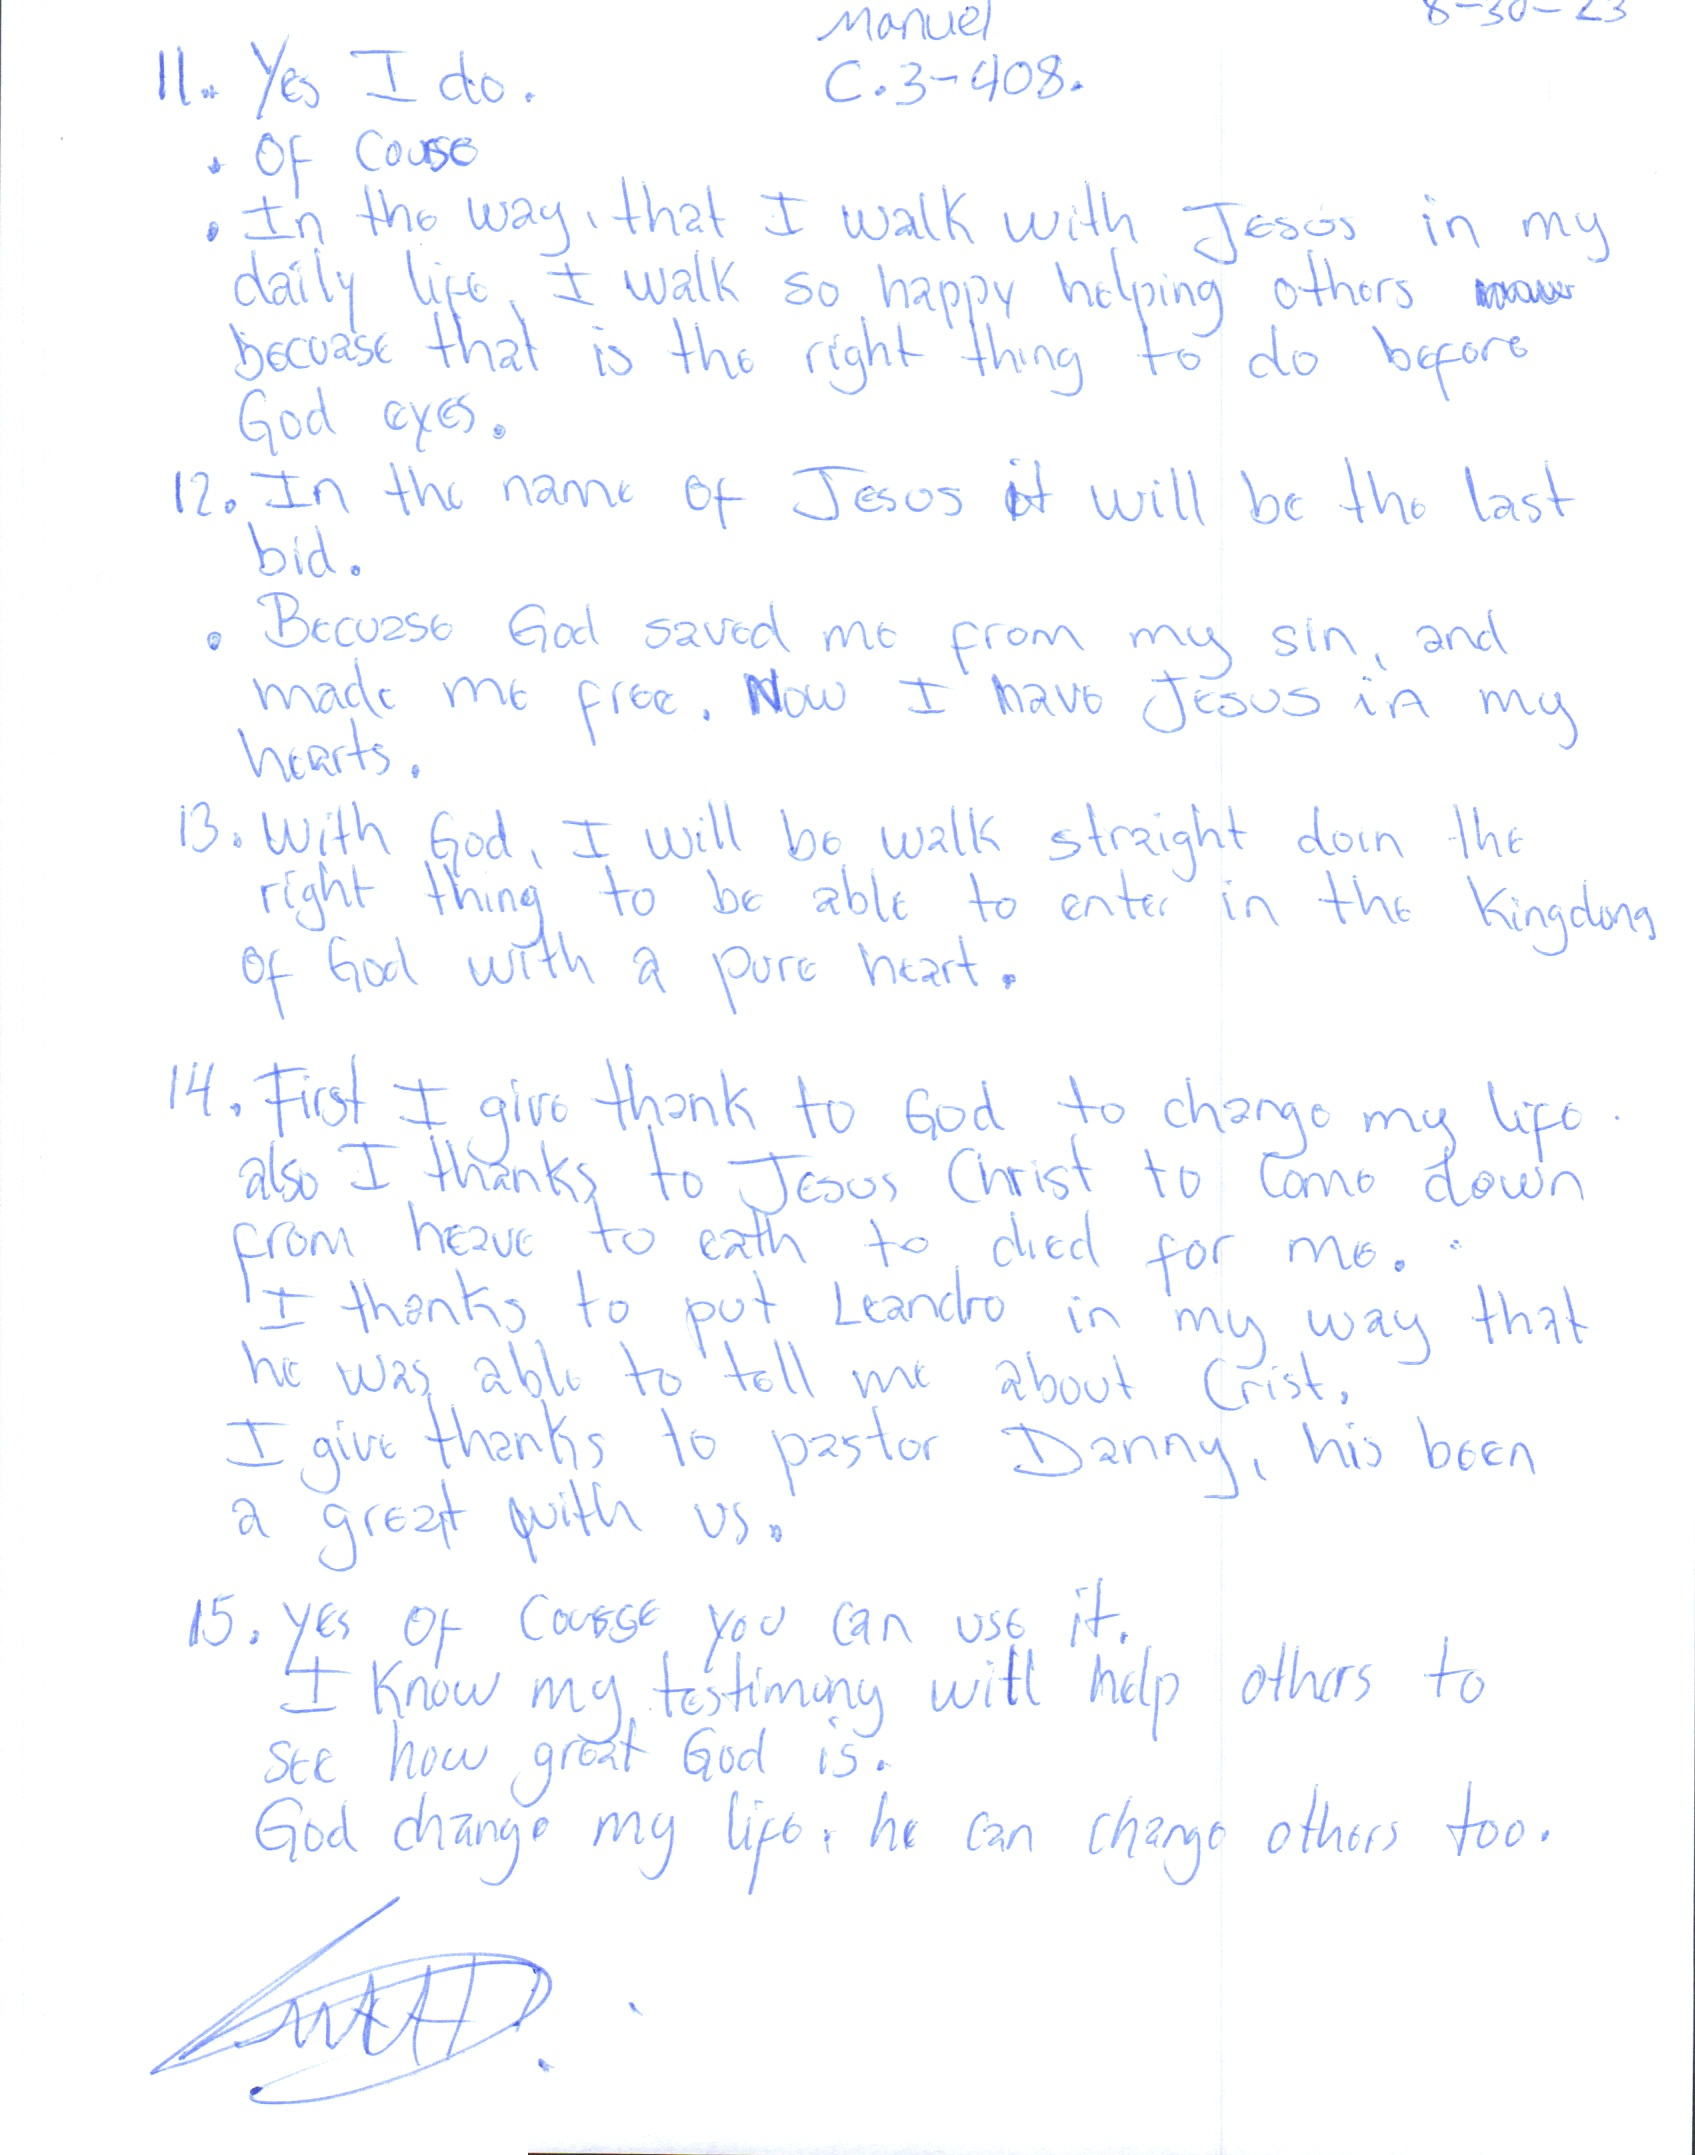 Manuel 8-30-23
11. Yes I do. C.3-408.
. Of Couse
. In the way, that I walk with Jesús in my
daily life, I walk so happy helping others
becuase that is the right thing to do before
God eyes.
12. In the name of Jesus it will be the last
bid.
. Becuase God saved me from my sin, and
made me free. Now I have Jesus in my
hearts.
13. With God, I will be walk straight doin the
right thing to be able to enter in the Kingdong
of God with a pure heart.
14. First I give thank to God to change my life.
also I thanks to Jesus Christ to come down
from heave to eath to died for me.
I thanks to put Leandro in my way that
he was able to tell me about Crist.
I give thanks to pastor Danny, his been
a great with us.
15. Yes of Cousse you can use it.
I Know my testimony will help others to
see how great God is.
God change my life. he can change others too.